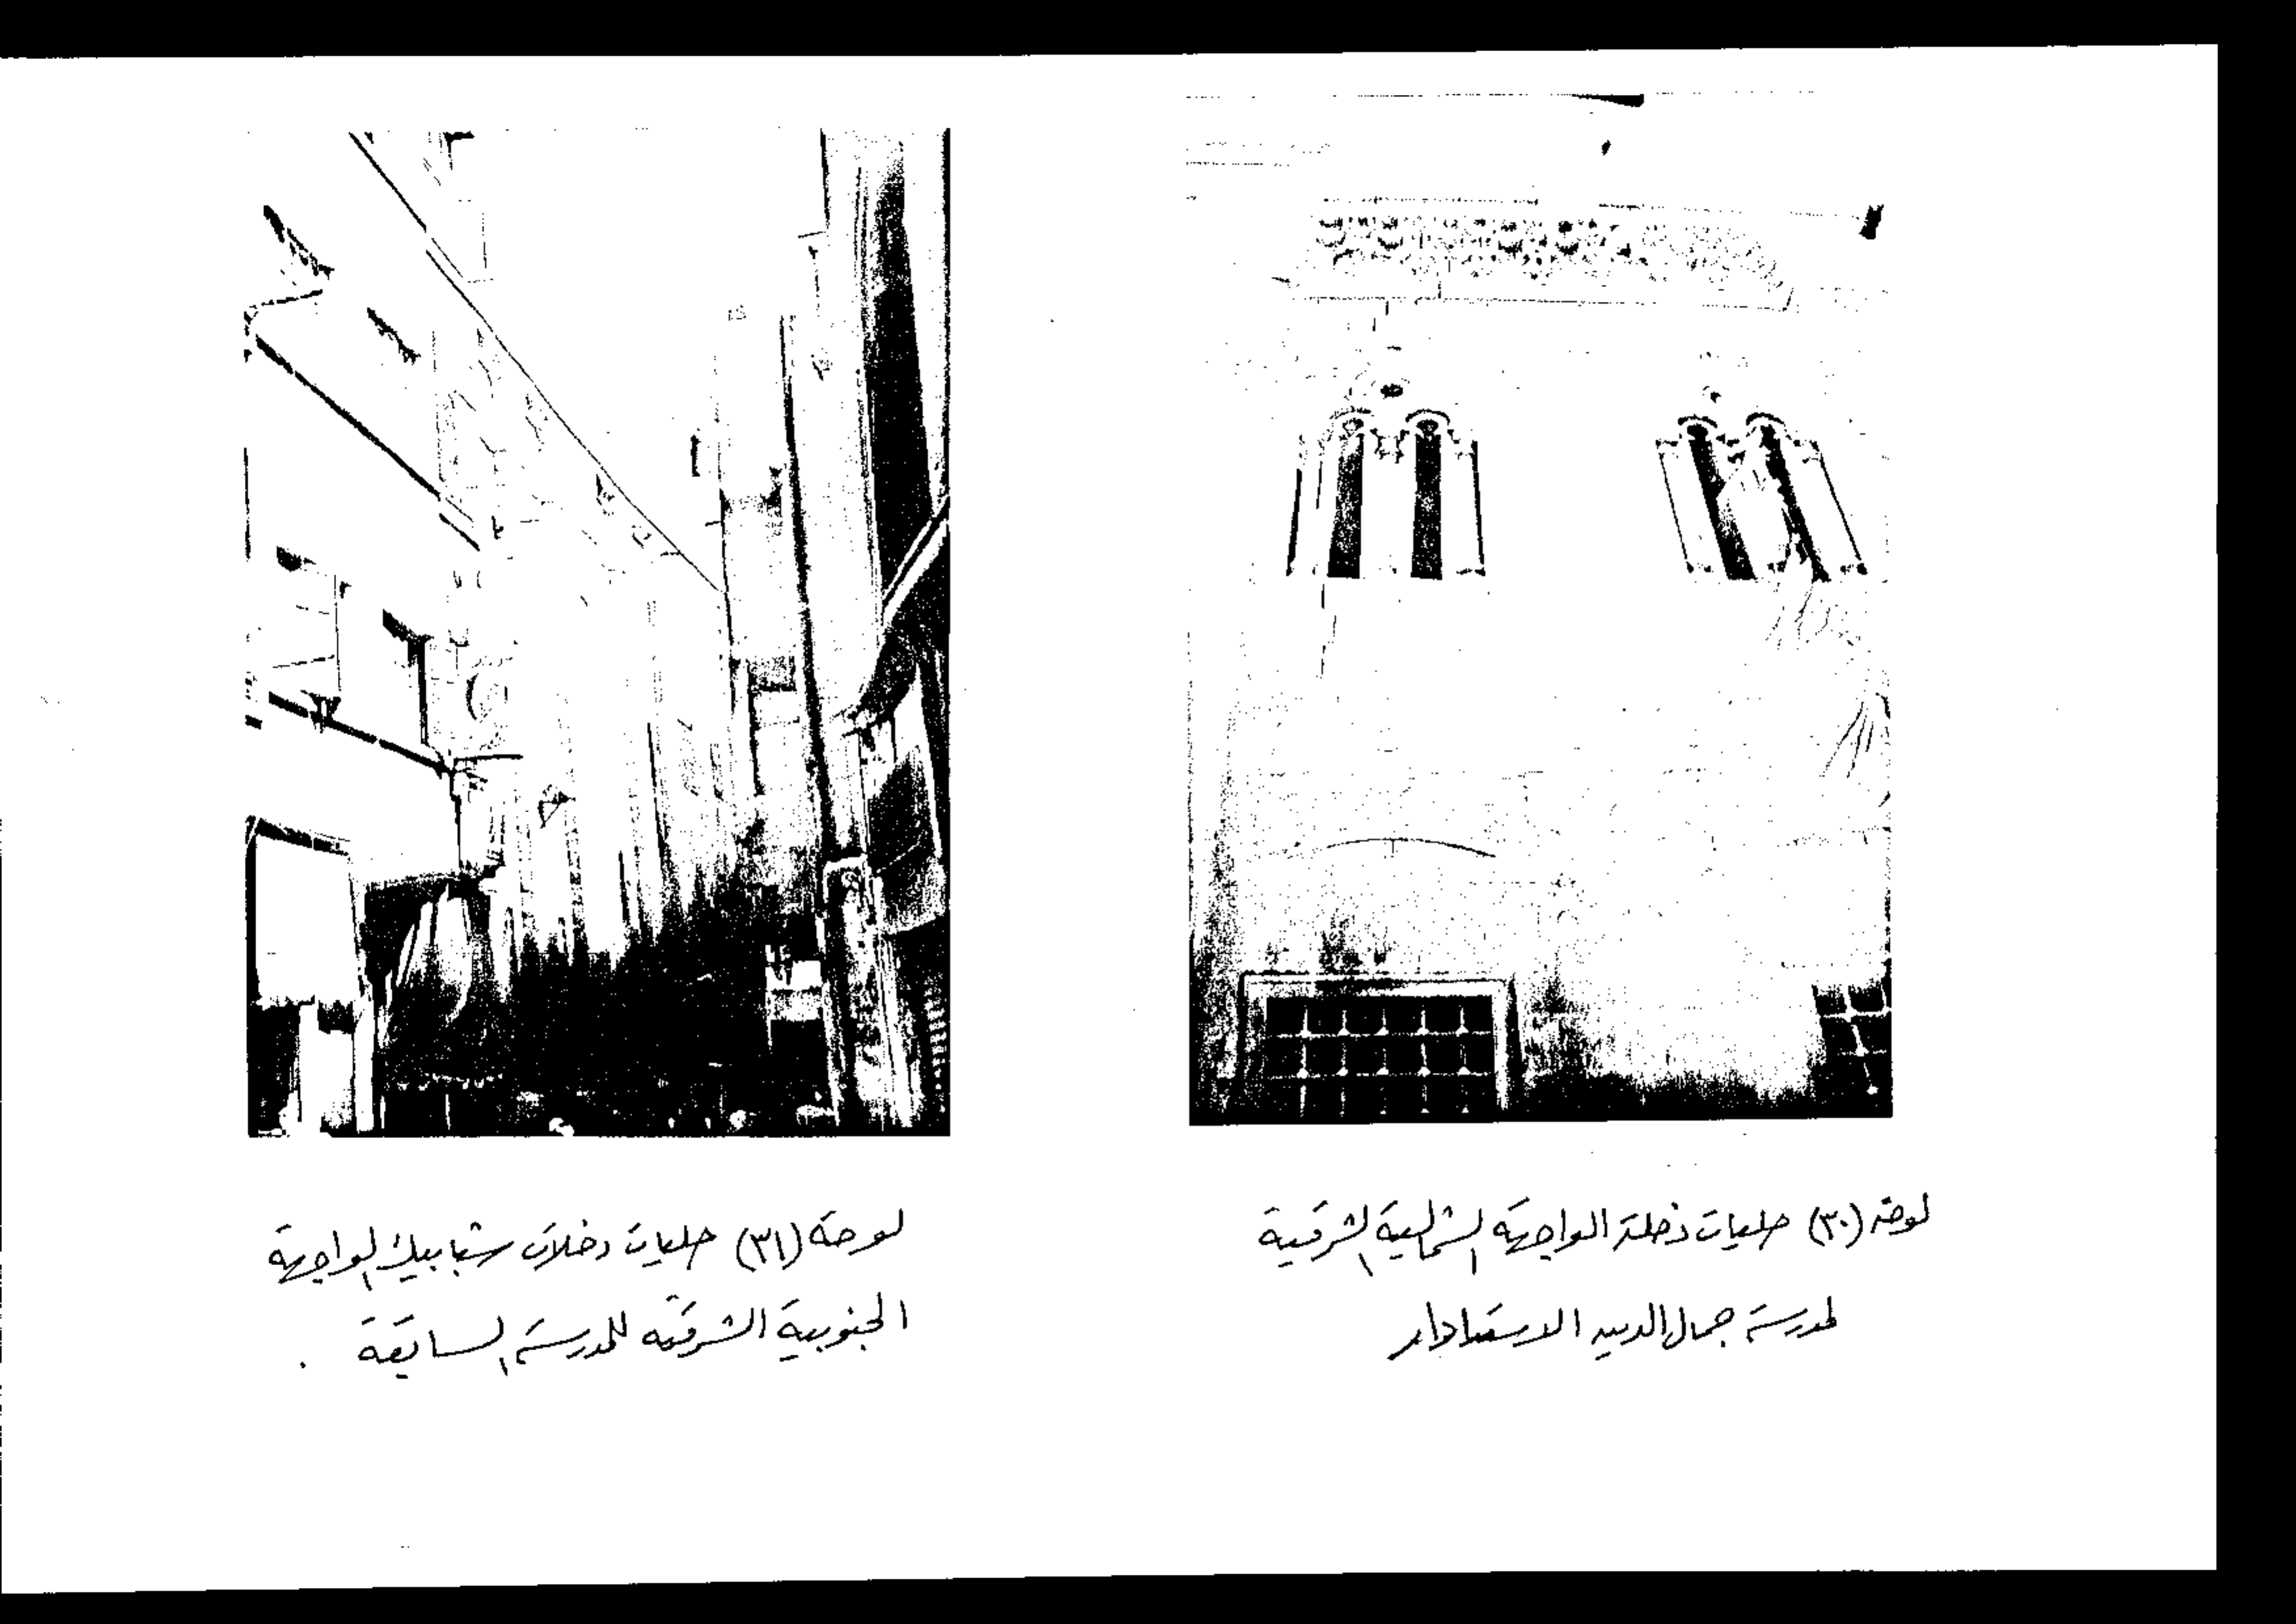 لوحة (٣٠) حليات دخلة الواجهة الشمالية الشرقية
لمدرسة جمال الدين الاستادار
لوحة (٣١) حليات دخلات شبابيك الواجهة
الجنوبية الشرقية للمدرسة السابقة .